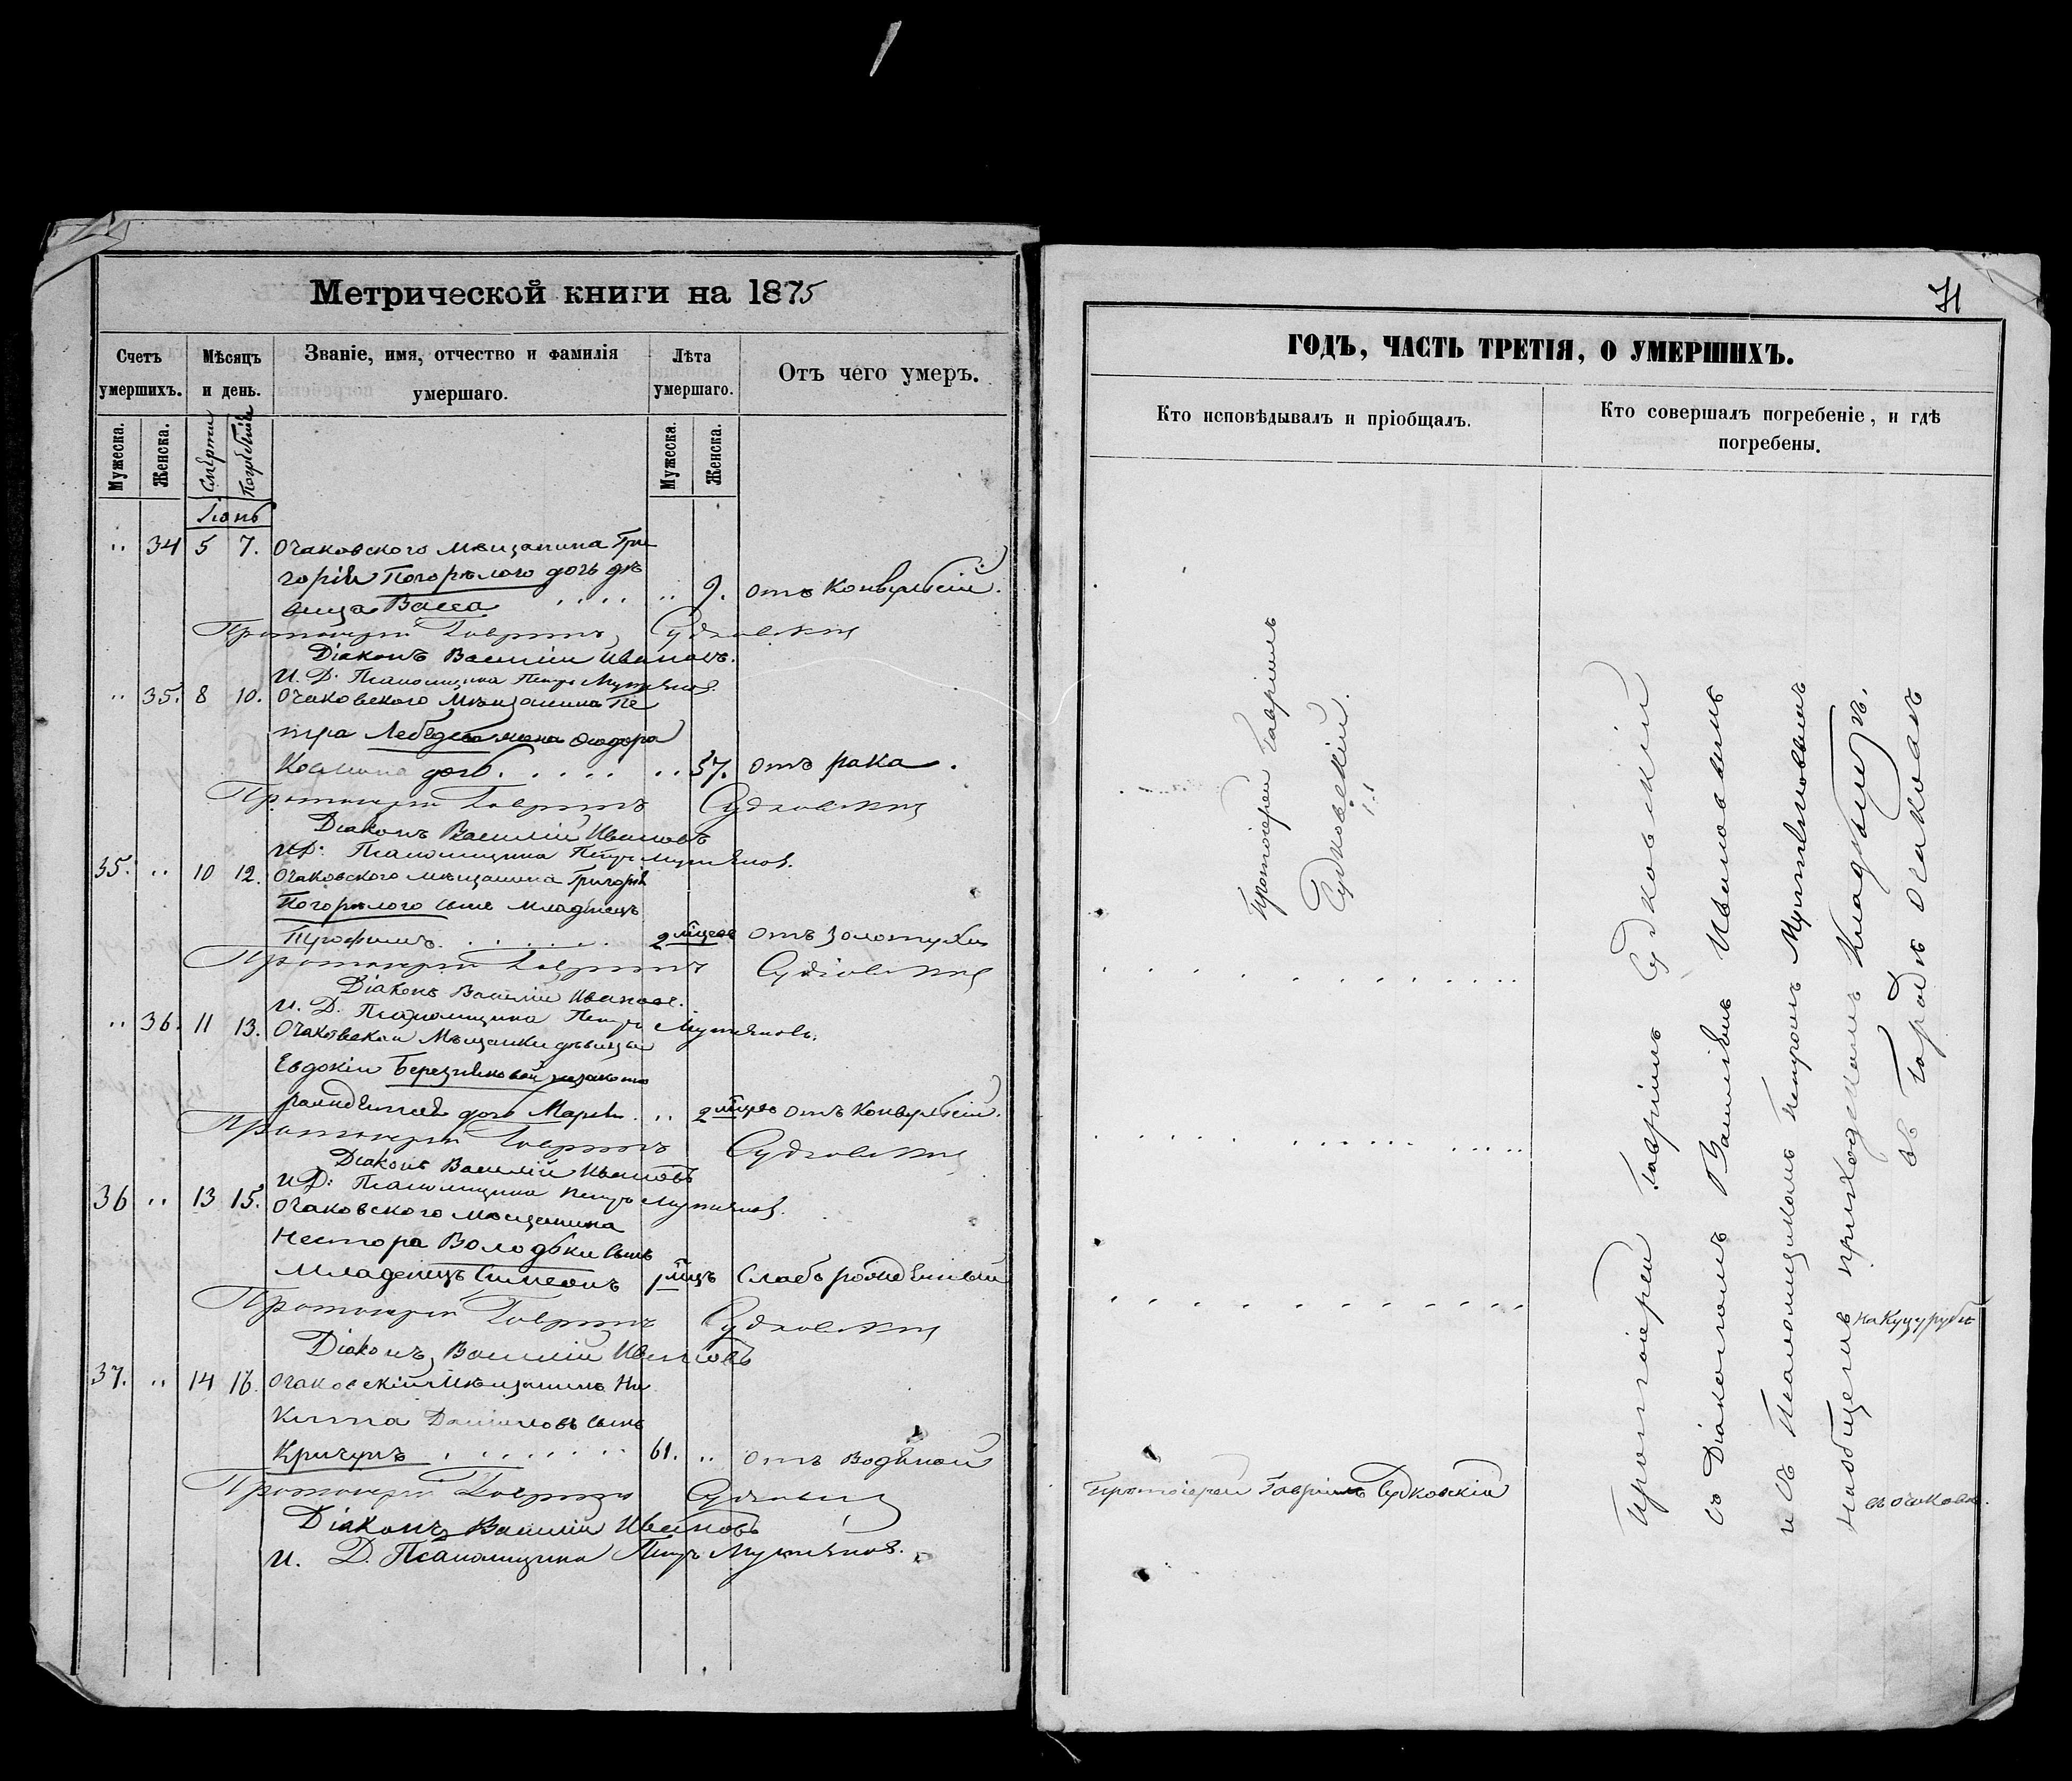 Метрической книги на 1875
Счетъ умершихъ.
Мѣсяцъ и день.
Званіе, имя, отчество и фамилія умершаго.
Лѣта умершаго.
Отъ чего умеръ.
Мужеска.
Женска.
Смерти
Погребенія
Мужеска.
Женска.
Іюнь
" 34 5 7. Очаковского мѣщанина Гри
горія Погорѣлого дочь дѣ
вица Васса . . . . " 9. отъ конвульсій.
Протоіерей Гавріилъ Судковскій
Діаконъ Василій Ивановъ.
И. Д. Псаломщика Петръ Мутьяновъ.
" 35. 8 10. Очаковского мѣщанина Пе
тра Лебедева жена Ѳеодора
Космина дочь . . . . . " 57. отъ рака.
Протоіерей Гавріилъ Судковскій
Діаконъ Василій Ивановъ
И. Д. Псаломщика Петръ Мутьяновъ.
35. " 10 12. Очаковского мѣщанина Григорія
Погорѣлого сынъ младенецъ
Трофимъ . . . . . . 2 мѣсце отъ золотухи
Протоіерей Гавріилъ Судковскій
Діаконъ Василій Ивановъ.
И. Д. Псаломщика Петръ Мутьяновъ.
" 36. 11 13. Очаковской мѣщанки дѣвицы
Евдокіи Березняковой незаконно
рожденная дочь Марія . " 2 мѣсце отъ конвульсій.
Протоіерей Гавріилъ Судковскій
Діаконъ Василій Ивановъ
И. Д. Псаломщика Петръ Мутьяновъ.
36 " 13 15. Очаковского мѣщанина
Нестора Володьки сынъ
младенецъ Симеонъ 1 мѣцъ Слабъ рожденный
Протоіерей Гавріилъ Судковскій
Діаконъ Василій Ивановъ
37. " 14 16. Очаковскій мѣщанинъ Ни
кита Даниловъ сынъ
Кричунъ . . . . . . . 61. " отъ водяной
Протоіерей Гавріилъ Судковскій
Діаконъ Василій Ивановъ
И. Д. Псаломщика Петръ Мутьяновъ.
71
ГОДЪ, ЧАСТЬ ТРЕТІЯ, О УМЕРШИХЪ.
Кто исповѣдывалъ и пріобщалъ.
Кто совершалъ погребеніе, и гдѣ погребены.
Протоіерей Гавріилъ
Судковскій.
Протоіерей Гавріилъ Судковскій
Протоіерей Гавріилъ Судковскій
съ Діакономъ Василіемъ Ивановымъ
и съ Псаломщикомъ Петромъ Мутьяновымъ
на общемъ приходскомъ кладбищѣ.
въ городѣ Очаковѣ
на Куцурубѣ
въ Очаковѣ.